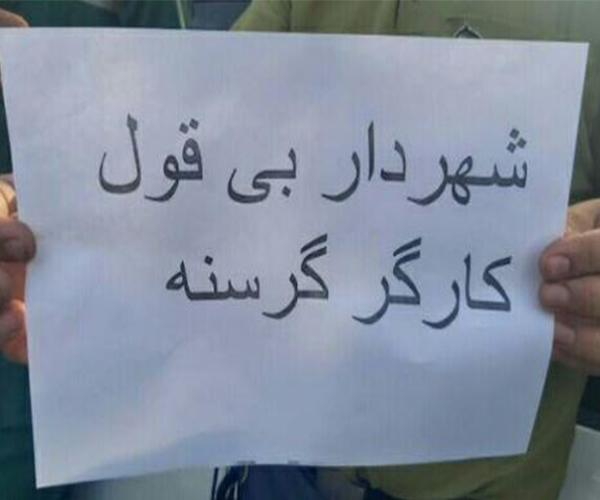 شهردار بی قول
کارگر گرسنه